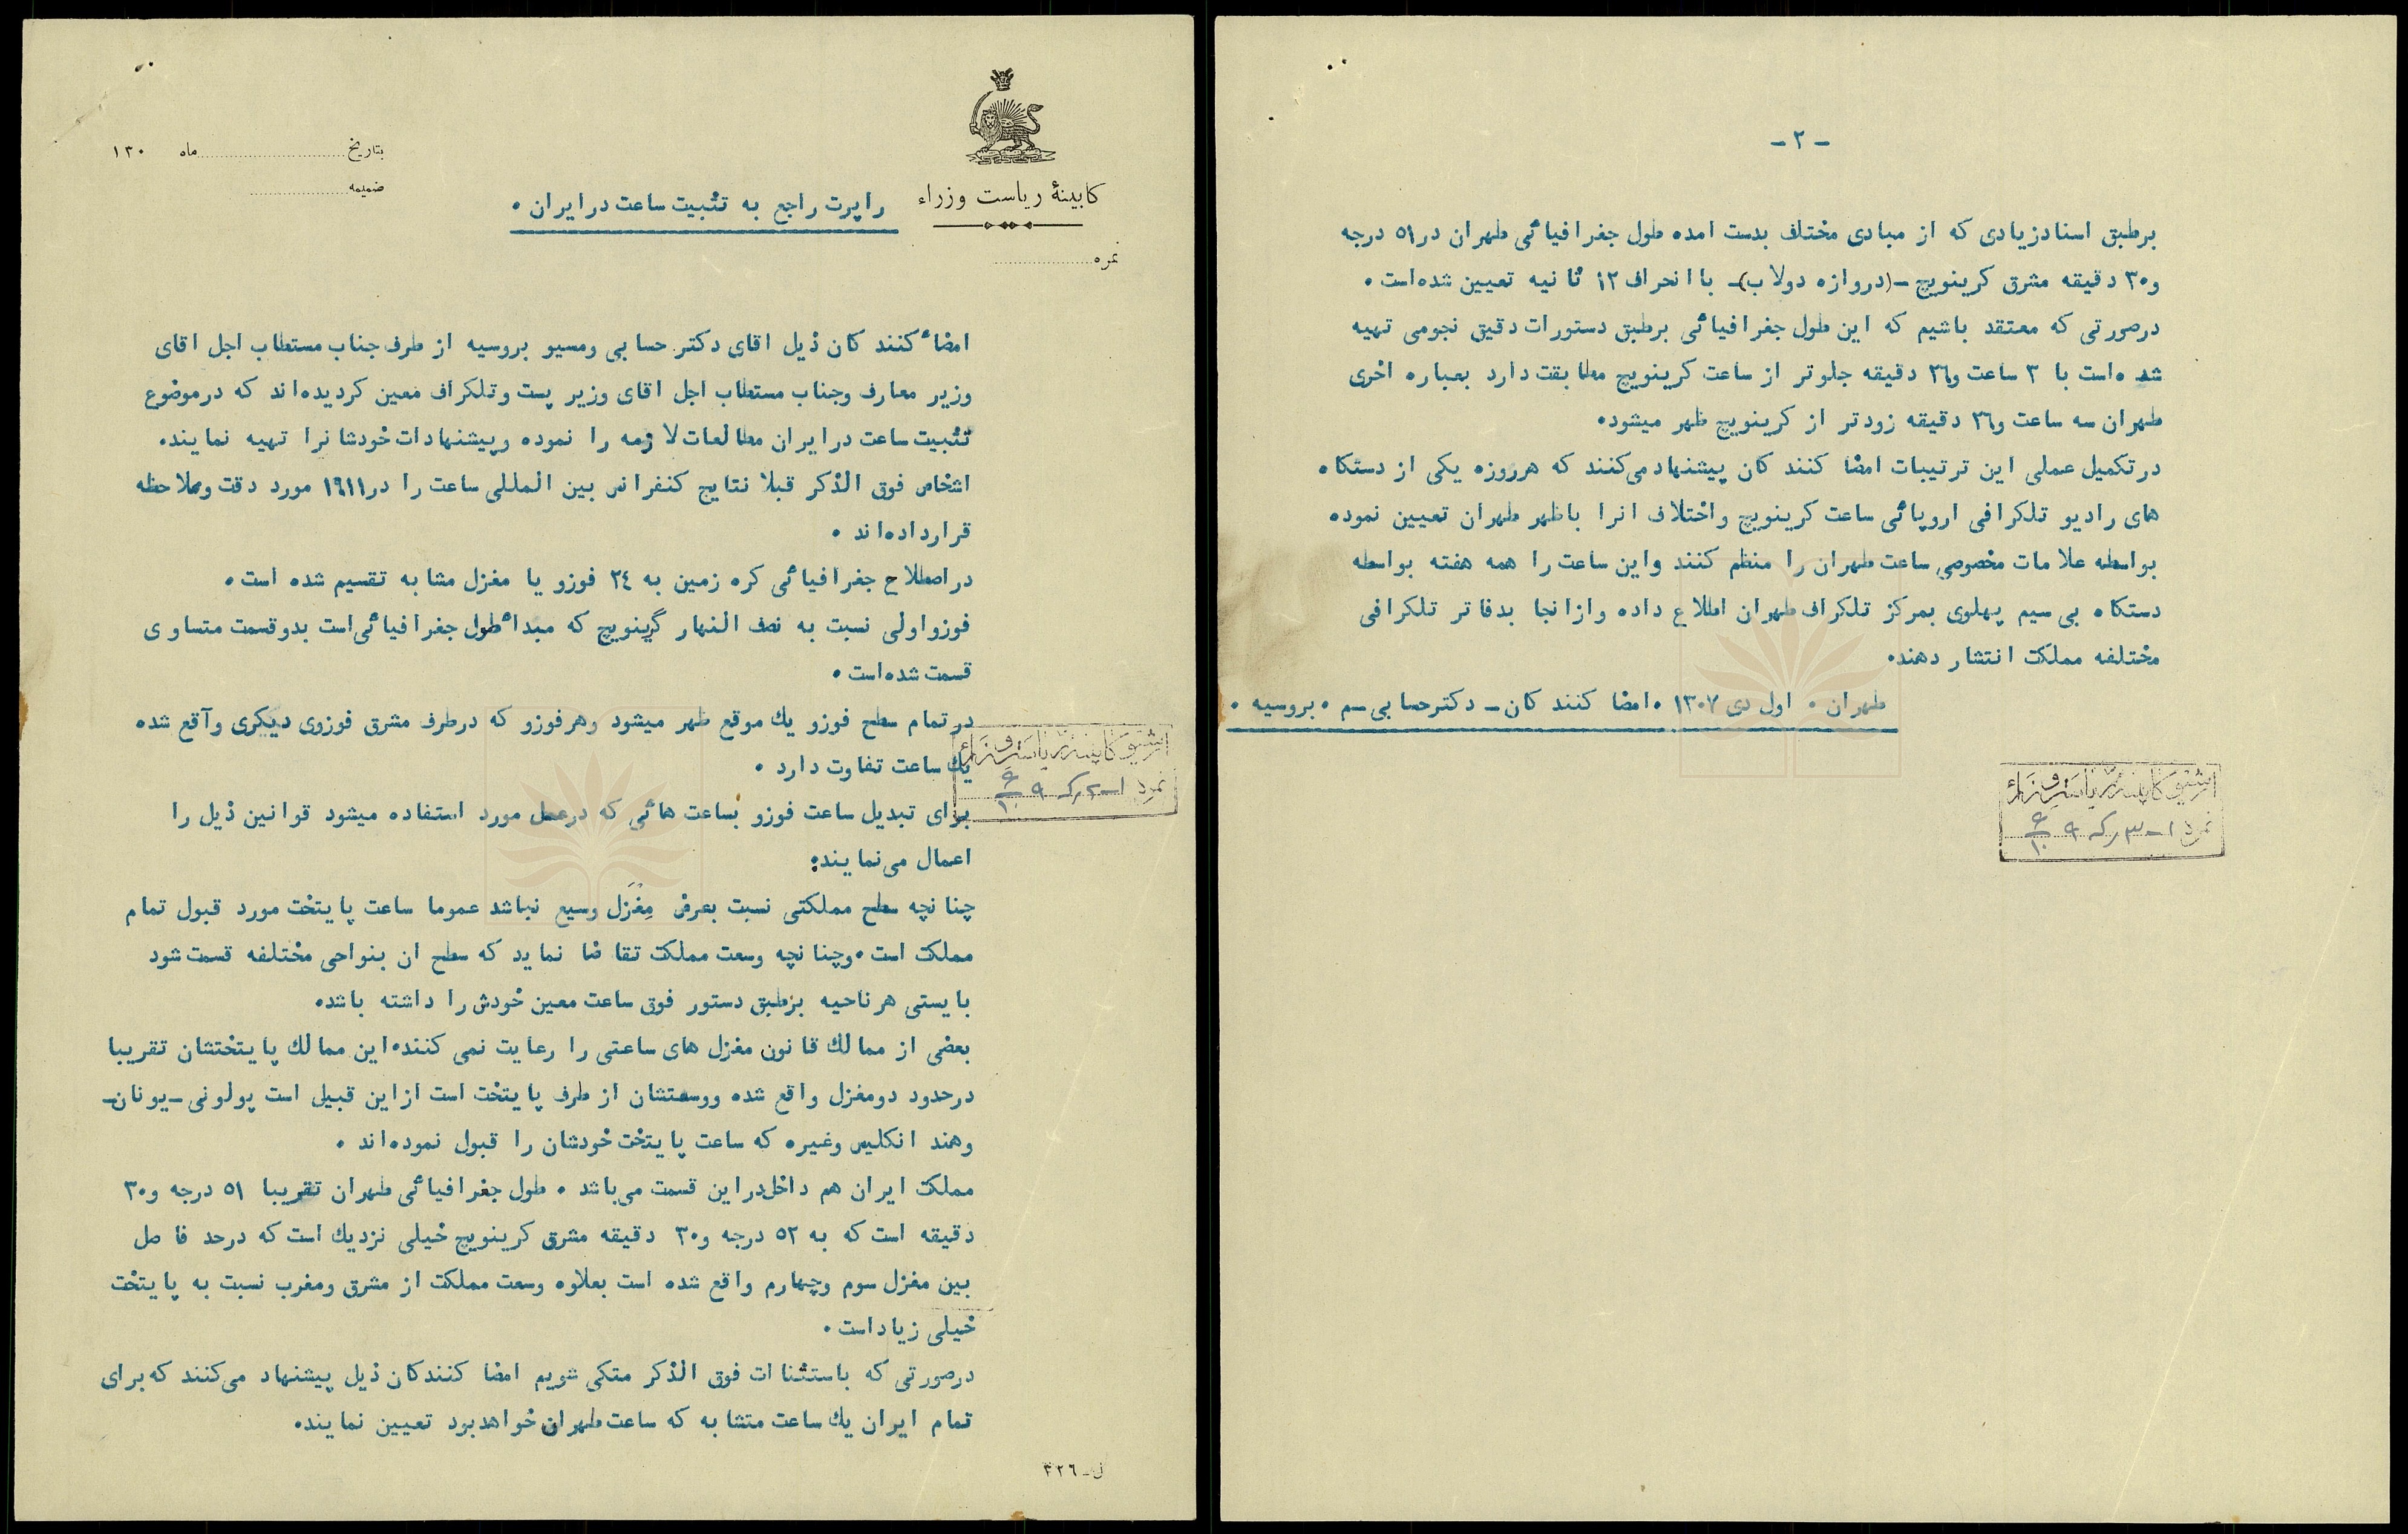 کابینهٔ ریاست وزراء
بتاریخ ماه ۱۳۰
ضمیمه
نمره
راپرت راجع به تثبیت ساعت در ایران ۰
امضاٴ کنند کان ذیل اقای دکتر حسابی ومسیو بروسیه از طرف جناب مستطاب اجل اقای
وزیر معارف وجناب مستطاب اجل اقای وزیر پست وتلکراف معین کردیده‌اند که درموضوع
تثبیت ساعت درایران مطالعات لازمه را نموده وپیشنهادات خودشانرا تهیه نمایند۰
اشخاص فوق الذکر قبلا نتایج کنفرانس بین المللی ساعت را در۱۹۱۱ مورد دقت وملاحظه
قرارداده‌اند ۰
دراصطلاح جغرافیائی کره زمین به ۲٤ فوزو یا مغزل مشابه تقسیم شده است۰
فوزواولی نسبت به نصف النهار گرینویچ که مبداٴ طول جغرافیائی‌است بدوقسمت متساوی
قسمت شده‌است۰
درتمام سطح فوزو یك موقع ظهر میشود وهرفوزو که درطرف مشرق فوزوی دیکری وآقع شده
یك ساعت تفاوت دارد ۰
برای تبدیل ساعت فوزو بساعت هائی که درعمل مورد استفاده میشود قوانین ذیل را
اعمال می‌نمایند:
چنانچه سطح مملکتی نسبت بعرض مِغْزَل وسیع نباشد عموما ساعت پایتخت مورد قبول تمام
مملکت است۰وچنانچه وسعت مملکت تقاضا نماید که سطح ان بنواحی مختلفه قسمت شود
بایستی هرناحیه برطبق دستور فوق ساعت معین خودش را داشته باشد۰
بعضی از ممالك قانون مغزل های ساعتی را رعایت نمی کنند۰این ممالك پایتختشان تقریبا
درحدود دومغزل واقع شده ووسعتشان از طرف پایتخت است ازاین قبیل است پولونی-یونان-
وهند انکلیس وغیره که ساعت پایتخت خودشان را قبول نموده‌اند ۰
مملکت ایران هم داخل‌دراین قسمت می‌باشد ۰ طول جغرافیائی طهران تقریبا ٥۱ درجه و۳۰
دقیقه است که به ٥۲ درجه و۳۰ دقیقه مشرق کرینویچ خیلی نزدیك است که درحد فاصل
بین مغزل سوم وچهارم واقع شده است بعلاوه وسعت مملکت از مشرق ومغرب نسبت به پایتخت
خیلی زیاد است۰
درصورتی که باستثناات فوق الذکر متکی شویم امضا کنندکان ذیل پیشنهاد می‌کنند که برای
تمام ایران یك ساعت متشابه که ساعت طهران خواهدبود تعیین نمایند۰
ل-۳۲٦
-۲-
برطبق اسنادزیادی که از مبادی مختلف بدست امده طول جغرافیائی طهران در٥۱ درجه
و۳۰ دقیقه مشرق کرینویچ-(دروازه دولاب)- باانحراف ۱۲ ثانیه تعیین شده‌است۰
درصورتی که معتقد باشیم که این طول جغرافیائی برطبق دستورات دقیق نجومی تهیه
شده‌است با ۳ ساعت و۲٦ دقیقه جلوتر از ساعت کرینویچ مطابقت دارد بعباره اخری
طهران سه ساعت و۲٦ دقیقه زودتر از کرینویچ ظهر میشود۰
درتکمیل عملی این ترتیبات امضا کنند کان پیشنهاد می‌کنند که هرروزه یکی از دستکاه
های رادیو تلکرافی اروپائی ساعت کرینویچ واختلاف انرا باظهر طهران تعیین نموده
بواسطه علامات مخصوصی ساعت طهران را منظم کنند واین ساعت را همه هفته بواسطه
دستکاه بی سیم پهلوی بمرکز تلکراف طهران اطلاع داده وازانجا بدفاتر تلکرافی
مختلفه مملکت انتشار دهند۰
طهران ۰ اول دی ۱۳۰۷ ۰ امضا کنند کان- دکترحسابی-م ۰ بروسیه ۰